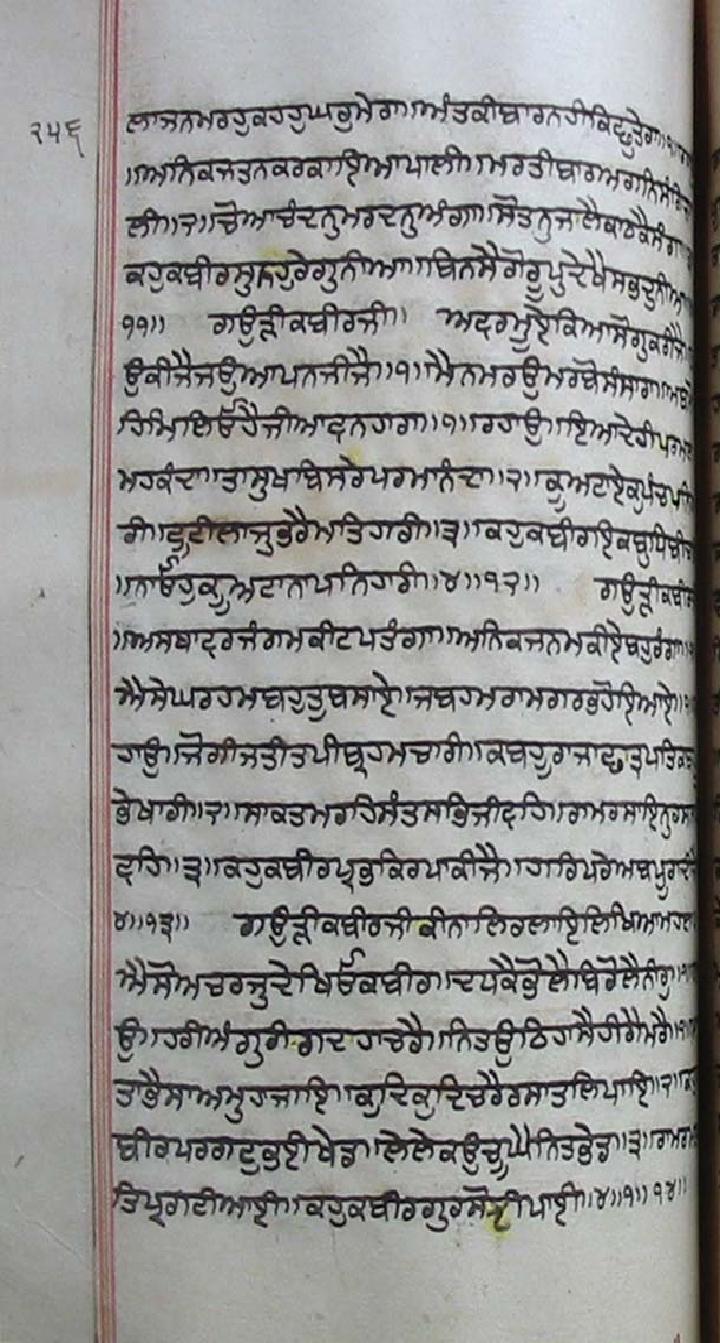 ੨੫੬
ਲਾਜਨਮਰਹੁਕਹਹੁਘਰੁਮੇਰਾ॥ਅੰਤਕੀਬਾਰਨਹੀਕਿਛੁਤੇਰਾ॥੧॥
॥ਅਨਿਕਜਤਨਕਰਕਾਇਆਪਾਲੀ॥ਮਰਤੀਬਾਰਅਗਨਿਸੰਗਿਜਾ
ਲੀ॥੨॥ਚੋਆਚੰਦਨੁਮਰਦਨੁਅੰਗਾ॥ਸੋਤਨੁਜਾਲੈਕਾਠਕੈਸੰਗਾ॥
ਕਹੁਕਬੀਰਸੁਨਹੁਰੇਗੁਨੀਆ॥ਬਿਨਸੈਗੋਰੂਪੁਦੇਖੈਸਭਦੁਨੀਆ
੧੧॥ ਗਉੜੀਕਬੀਰਜੀ॥ ਅਵਰਮੂਏਕਿਆਸੋਗੁਕਰੀਜੈ
ਉਕੀਜੈਜਉਆਪਨਜੀਜੈ॥੧॥ਮੈਨਮਰਉਮਰਬੋਸੰਸਾਰਾ॥ਅਬਮੋ
ਹਿਮਿਲਿਓਹੈਜੀਆਵਨਹਾਰਾ॥੧॥ਰਹਾਉ॥ਇਆਦੇਹੀਪਰਮਲ
ਮਹਕੰਦਾ॥ਤਾਸੁਖਬਿਸਰੇਪਰਮਾਨੰਦਾ॥੨॥ਕੂਅਟਾਏਕੁਪੰਚਪਨਿ
ਰੀ॥ਟੂਟੀਲਾਜੁਭਰੈਮਤਿਹਾਰੀ॥੩॥ਕਹੁਕਬੀਰਇਕਬੁਧਿਬੀਚਾ
॥ਨਾਓਹੁਕੂਅਟਾਨਾਪਨਿਹਾਰੀ॥੪॥੧੨॥ ਗਉੜੀਕਬੀਰ
॥ਅਸਥਾਵਰਜੰਗਮਕੀਟਪਤੰਗਾ॥ਅਨਿਕਜਨਮਕੀਏਬਹੁਰੰਗਾ॥੧
ਐਸੇਘਰਹਮਬਹੁਤੁਬਸਾਏ॥ਜਬਹਮਰਾਮਗਰਭਹੋਇਆਏ॥੧
ਹਾਉ॥ਜੋਗੀਜਤੀਤਪੀਬ੍ਰਹਮਚਾਰੀ॥ਕਬਹੂਰਾਜਾਛਤ੍ਰਪਤਿਕਬ
ਭੇਖਾਰੀ॥੨॥ਸਾਕਤਮਰਹਿਸੰਤਸਭਿਜੀਵਹਿ॥ਰਾਮਰਸਾਇਨੁਰਸ
ਵਹਿ॥੩॥ਕਹੁਕਬੀਰਪ੍ਰਭਕਿਰਪਾਕੀਜੈ॥ਹਾਰਿਪਰੇਅਬਪੂਰਾਦੀਜੈ
੪॥੧੩॥ ਗਉੜੀਕਬੀਰਜੀਕੀਨਾਲਿਰਲਾਇਲਿਖਿਆਮਹਲਾ
ਐਸੋਅਚਰਜੁਦੇਖਿਓਕਬੀਰਾ॥ਦਧਕੈਭੋਲੈਬਿਰੋਲੈਨੀਰੁ॥੧॥
ਉ॥ਹਰੀਅੰਗੂਰੀਗਦਹਾਚਰੈ॥ਨਿਤਉਠਿਹਾਸੈਹੀਗੈਮਰੈ॥੧॥
ਤਾਭੈਸਾਅਮੁਹਜਾਇ॥ਕੁਦਿਕੁਦਿਚਰੈਰਸਾਤਲਿਪਾਇ॥੨॥ਕਹੁ
ਬੀਰਪਰਗਟੁਭਈਖੇਡ॥ਲੇਲੇਕਉਚੂਘੈਨਿਤਭੇਡ॥੩॥ਰਾਮਰਮ
ਤਿਪ੍ਰਗਟੀਆਈ॥ਕਹੁਕਬੀਰਗੁਰਸੋਝੀਪਾਈ॥੪॥੧॥੧੪॥